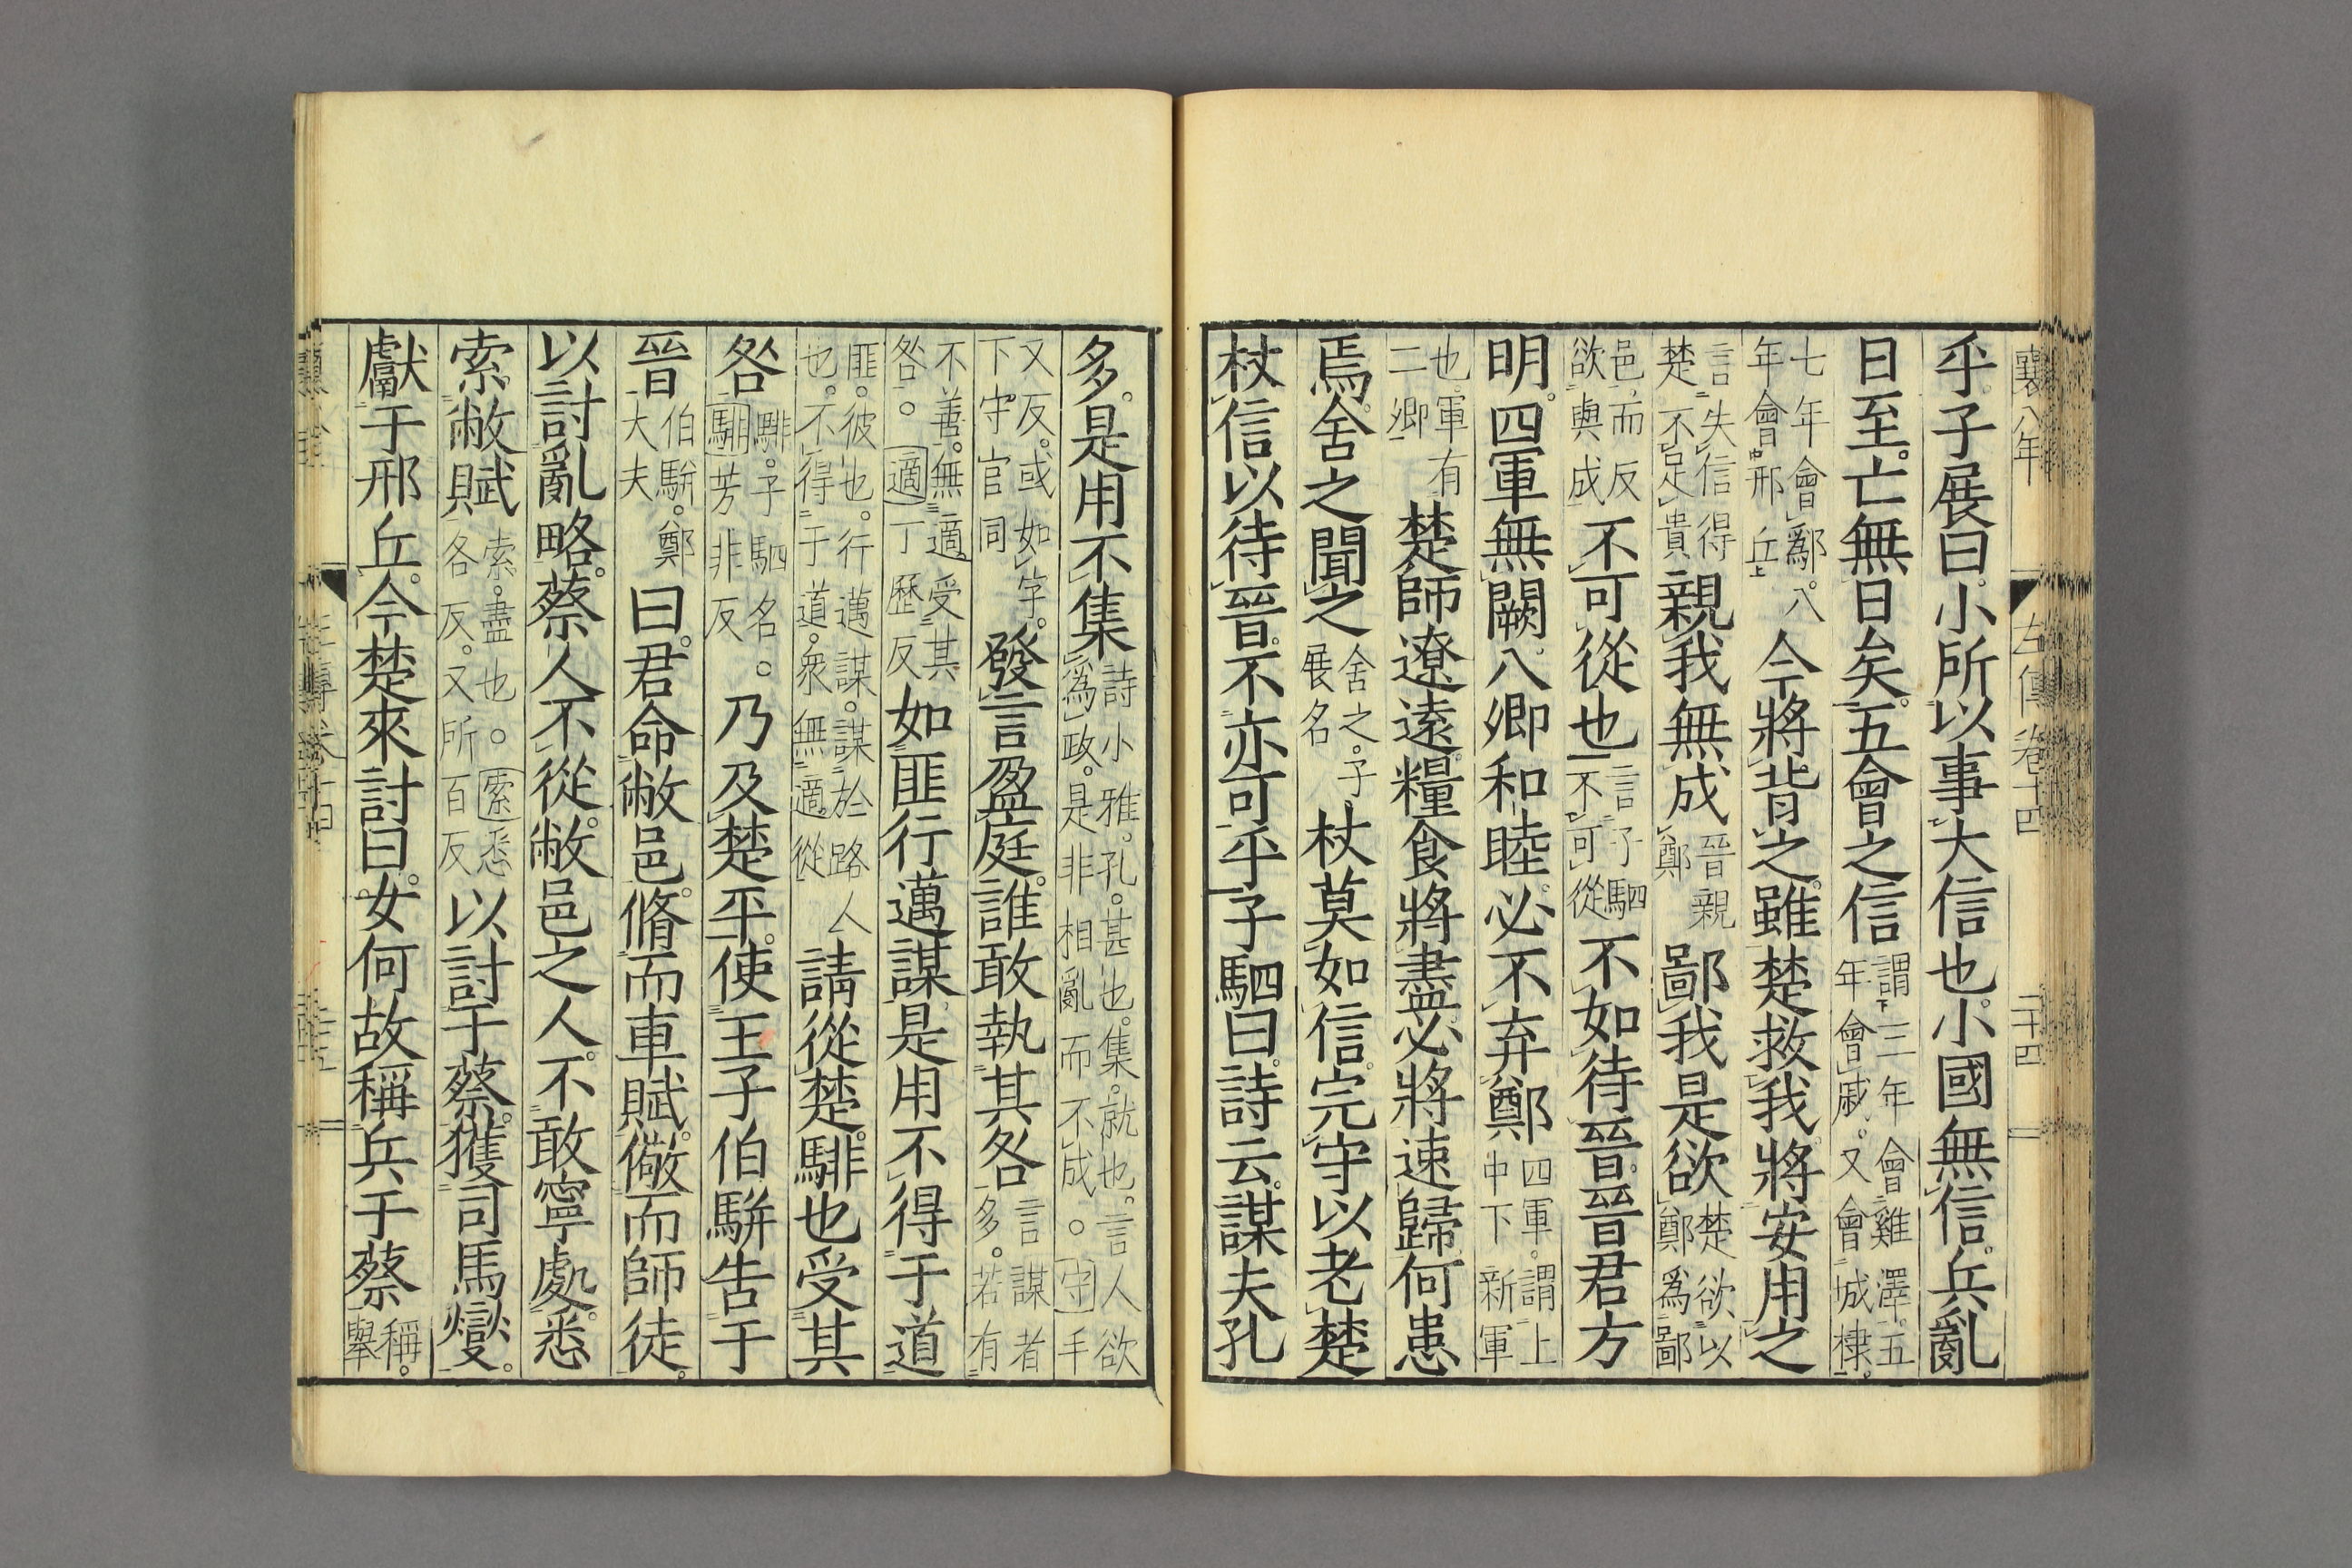 襄八年 左傳卷十四 二十四
乎。子展曰。小所以事大信也。小國無信。兵亂
日至。亡無日矣。五會之信謂三年會雞澤。五年會戚。又會城棣。
七年會鄬。八年會邢丘今將背之。雖楚救我。將安用之
言失信得楚不足貴親我無成晉親鄭鄙我是欲楚欲以鄭爲鄙
邑而反欲與成不可從也言子駟不可從不如待晉。晉君方
明。四軍無闕。八卿和睦。必不弃鄭四軍。謂上中下新軍
也。軍有二卿楚師遼遠。糧食將盡。必將速歸。何患
焉。舍之聞之舍之。子展名杖莫如信。完守以老楚
杖信以待晉。不亦可乎。子駟曰。詩云。謀夫孔
多。是用不集詩小雅。孔。甚也。集。就也。言人欲爲政。是非相亂而不成。○守手
又反。或如字。下守官同發言盈庭。誰敢執其咎言謀者多。若有
不善。無適受其咎。○適丁歷反如匪行邁謀。是用不得于道
匪。彼也。行邁謀。謀於路人也。不得于道。衆無適從請從楚。騑也受其
咎騑。子駟名。○騑芳非反乃及楚平。使王子伯駢告于
晉伯駢。鄭大夫曰。君命敝邑。脩而車賦。儆而師徒。
以討亂略。蔡人不從。敝邑之人。不敢寧處。悉
索敝賦索。盡也。○索悉各反。又所百反以討于蔡。獲司馬燮。
獻于邢丘。今楚來討曰。女何故稱兵于蔡稱。舉